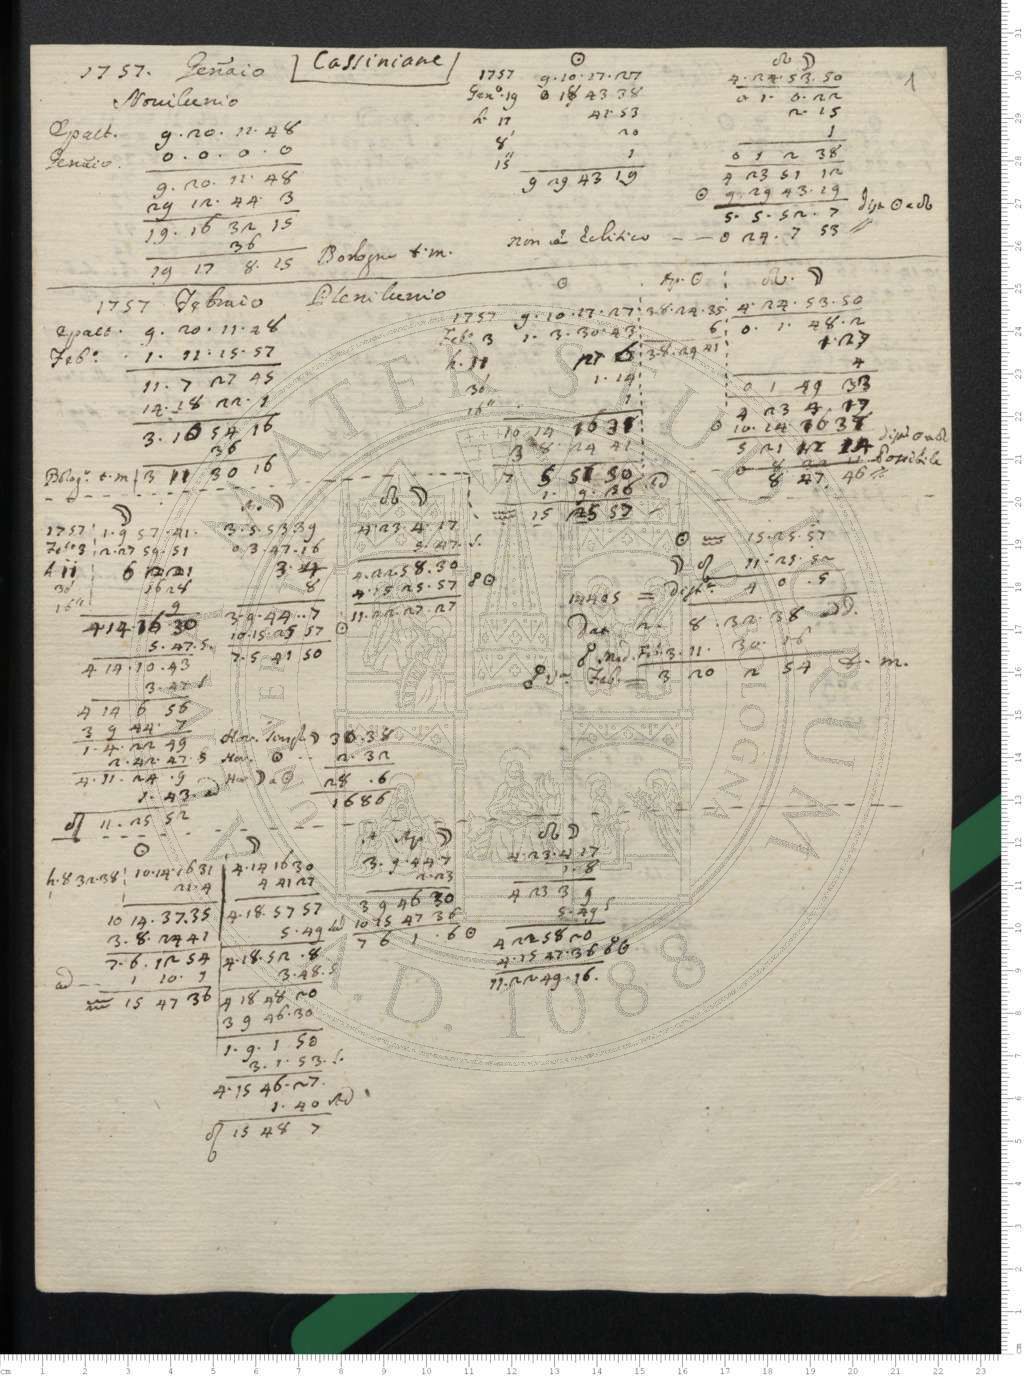 1757. Gennaio
Cassiniane
1
Novilunio
Epatt. 9.20.11.48
Gennaio. 0.0.0.0
9.20.11.48
29 12.44.3
19.16 32 15
36
19 17 8.15 Bologna t.m.
☉
1757 9.10.17.27
Gen.º 19 0 18 43 38
h. 17 41.53
8' 20
15" 1
9 29 43 19
☊ ☽
4.24.53.50
0 1. 0.22
2.15
1
0 1 2 38
4 23 51 12
☉ 9.29 43.19
5.5.52.7 Dist. ☉ a ☊
non è Eclitico -- 0 24.7 53
1757 Febraio Plenilunio
Epatt. 9.20.11.48
Feb.º 1.11.15.57
11.7 27 45
14.18 22.1
3.10 54 16
36
Bolog.ª t.m. 3 11 30 16
☉
1757 9.10.17.27
Feb.º 3 1.3.30.43
h. 11 27 6
30' 1.14
16" 1
10 14 16 31
3 8.24 41
7 5 51 50
1.9.36 ad
♒ 15 25 57
Ap. ☉
3 8.24.35
6
3.8.24 41
☊. ☽
4.24.53.50
0.1.48.2
1.27
4
0 1 49 33
4 23 4.17
☉ 10.14 16 31
5 21 12 14 Dist. ☉ a ☊
0 8 47 46 Possibile
☽
1757 1.9 57.41.
Feb.º 3 2.27 59.51
h 11 6 12 21
30' 16 28
16" 9
4.14 16 30
5.47.S.
4 14.10.43
3.47 S
4 14 6 56
3 9 44.7
1.4.22 49
2.42.47.S
4.11.24.9
1.43 ad
♌ 11.25 52
Ap. ☽
3.5.53 39
0 3.47.16
3.4
8
3.9.44..7
10.15.25 57 ☉
7.5.41 50
☊ ☽
4.23.4.17
5.47.S.
4.22 58.30
4.15 25.57 ☍☉
11.22.27.27
☉ ♒ 15.25.57
☽ ♌ 11.25.52
14405 = Dist.ª 4 0.5
Dat. 2. 8.32.38 ad.
☍ Med. Feb. 3.11. 30.16
☍ v.ª Feb. = 3 20 2 54 t.m.
Hor. ☽ 30.38
Hor. ☉ 2.32
Hor ☽ a ☉ 28.6
1686
☉
h. 8 32.38 10.14.16 31
21.4
10 14.37.35
3.8.24 41
7.6.12 54
ad 1 10.9
♒ 15 47 36
☽
4.14 16 30
4 41 27
4.18.57 57
5.49
4.18.52.8
3.48.S
4 18 48 20
3 9 46.30
1.9.1 50
3.1.53.S.
4.15 46.27.
1.40 ad
♌ 15 48 7
Ap. ☽
3.9.44 7
2.23
3 9 46 30
10 15 47 36
7 6 1.6 ☉
☊ ☽
4.23.4.17
1.8
4 23 3 9
5.49 S
4 22 58 20
4.15 47.36 ☍☉
11.22 49.16.
ALMA MATER STUDIORUM
A.D. 1088